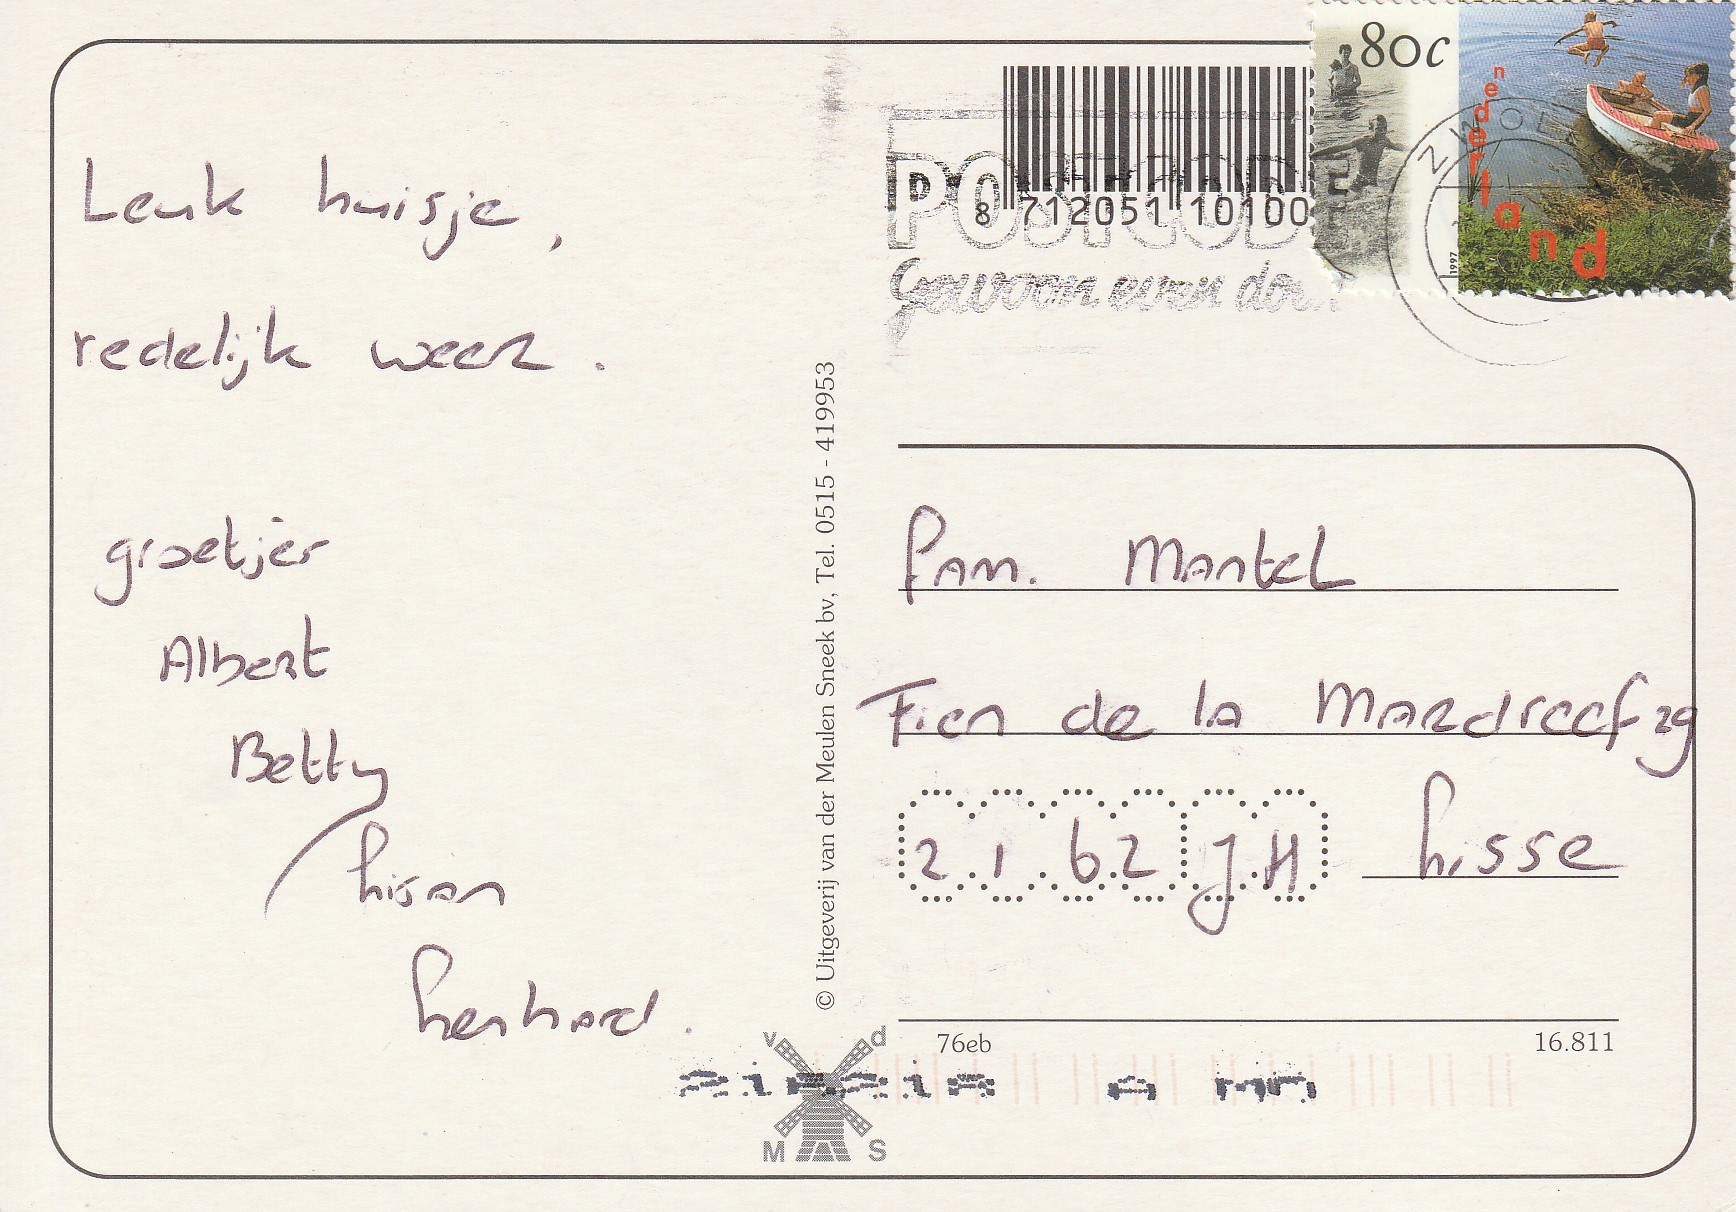 Leuk huisje,
redelijk weer.
groetjes
Albert
Betty
Lenhard.
© Uitgeverij van der Meulen Sneek bv, Tel. 0515 - 419953
v d
M S
8 712051 10100
POSTCODE
Gewoon even doen
80c
nederland
1997
Fam. Mantel
Fien de la Mardreef 29
2162 JH Lisse
76eb 16.811